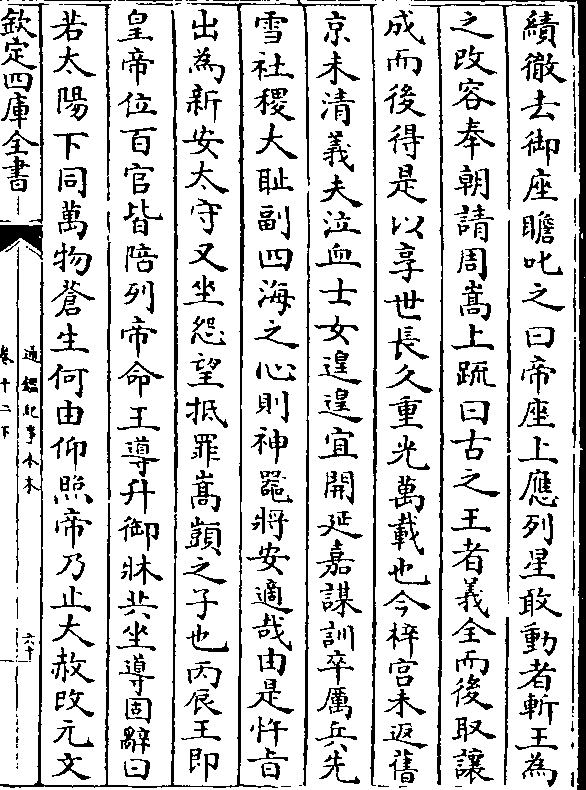 績徹去御座瞻叱之曰帝座上應列星敢動者斬王為
之改容奉朝請周嵩上疏曰古之王者義全而後取讓
成而後得是以享世長久重光萬載也今梓宮未返舊
京未清義夫泣血士女遑遑宜開延嘉謀訓卒厲兵先
雪社稷大耻副四海之心則神噐將安適哉由是忤㫖
出為新安太守又坐怨望抵罪嵩顗之子也丙辰王即
皇帝位百官皆陪列帝命王導升御牀共坐導固辭曰
若太陽下同萬物蒼生何由仰照帝乃止大赦改元文
欽定四庫全書
通鑑紀事本末
卷十二下
六十